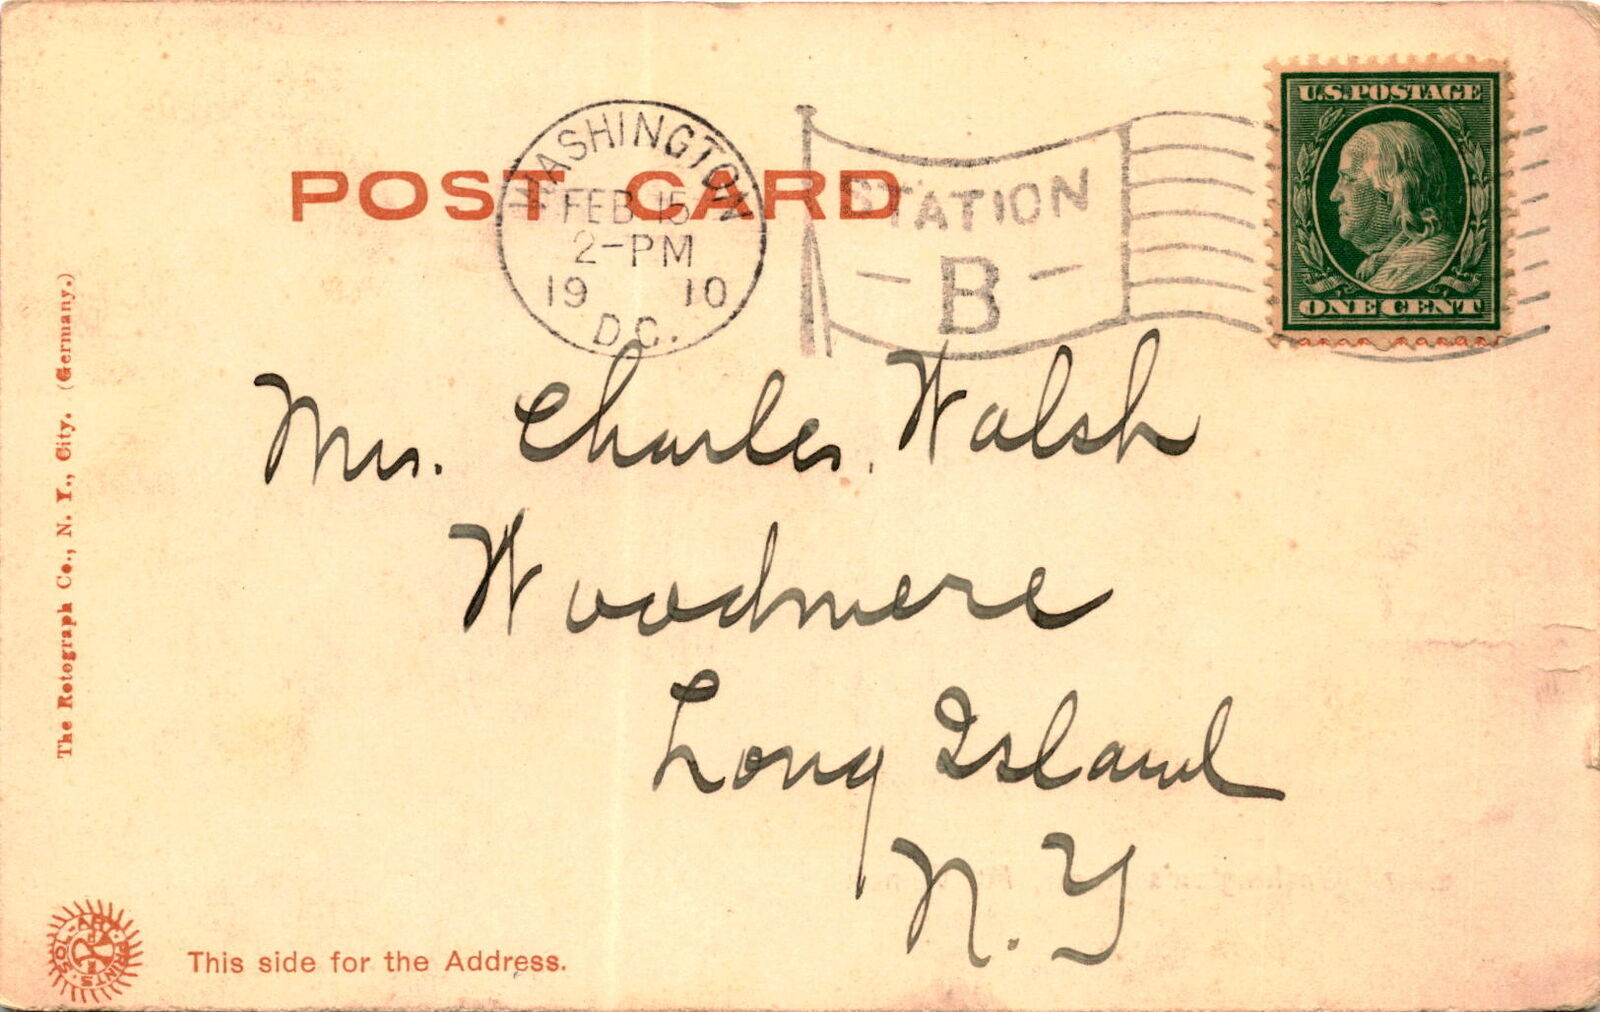 U.S. POSTAGE
ONE CENT
WASHINGTON
FEB 15
2-PM
19 10
D.C.
STATION
-B-
POST CARD
Mrs. Charles. Walsh
Woodmere
Long Island
N.Y
The Rotograph Co., N. Y., City. (Germany.)
SOL-ART PRINTS
This side for the Address.